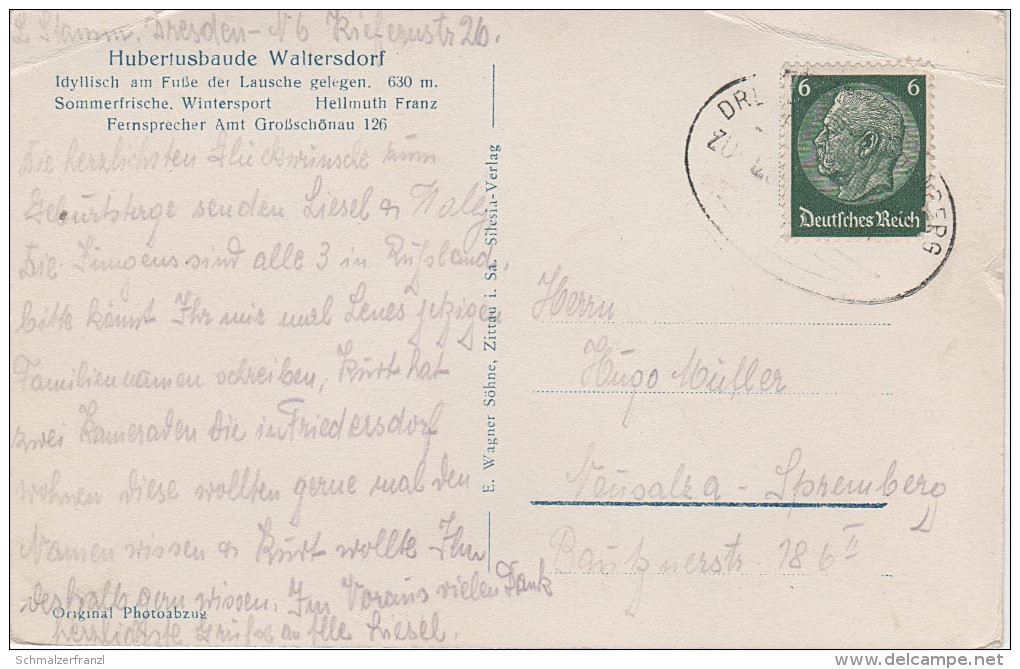 L. Stamm, Dresden-N6 Kiefernstr 26.
Hubertusbaude Waltersdorf
Idyllisch am Fuße der Lausche gelegen. 630 m.
Sommerfrische. Wintersport Hellmuth Franz
Fernsprecher Amt Großschönau 126
Die herzlichsten Glückwünsche zum
Geburtstage senden Liesel &
Die Jungens sind alle 3 in Rußland,
bitte könnt Ihr mir mal Lenes jetzigen
Familiennamen schreiben, Kurt hat
zwei Kameraden die in Friedersdorf
wohnen diese wollten gerne mal den
Namen wissen & Kurt wollte Ihn
deshalb gern wissen. Im Voraus vielen Dank
herzlichste Grüße an alle Liesel.
Original Photoabzug
E. Wagner Söhne, Zittau i. Sa. Silesia-Verlag
6 6
Deutsches Reich
DRE
ZU
BERG
Herrn
Hugo Müller
Neusalza-Spremberg
Bautznerstr 186 II
Schmalzerfranzl
PICTURES NOT FOR SALE @ delcampe.net